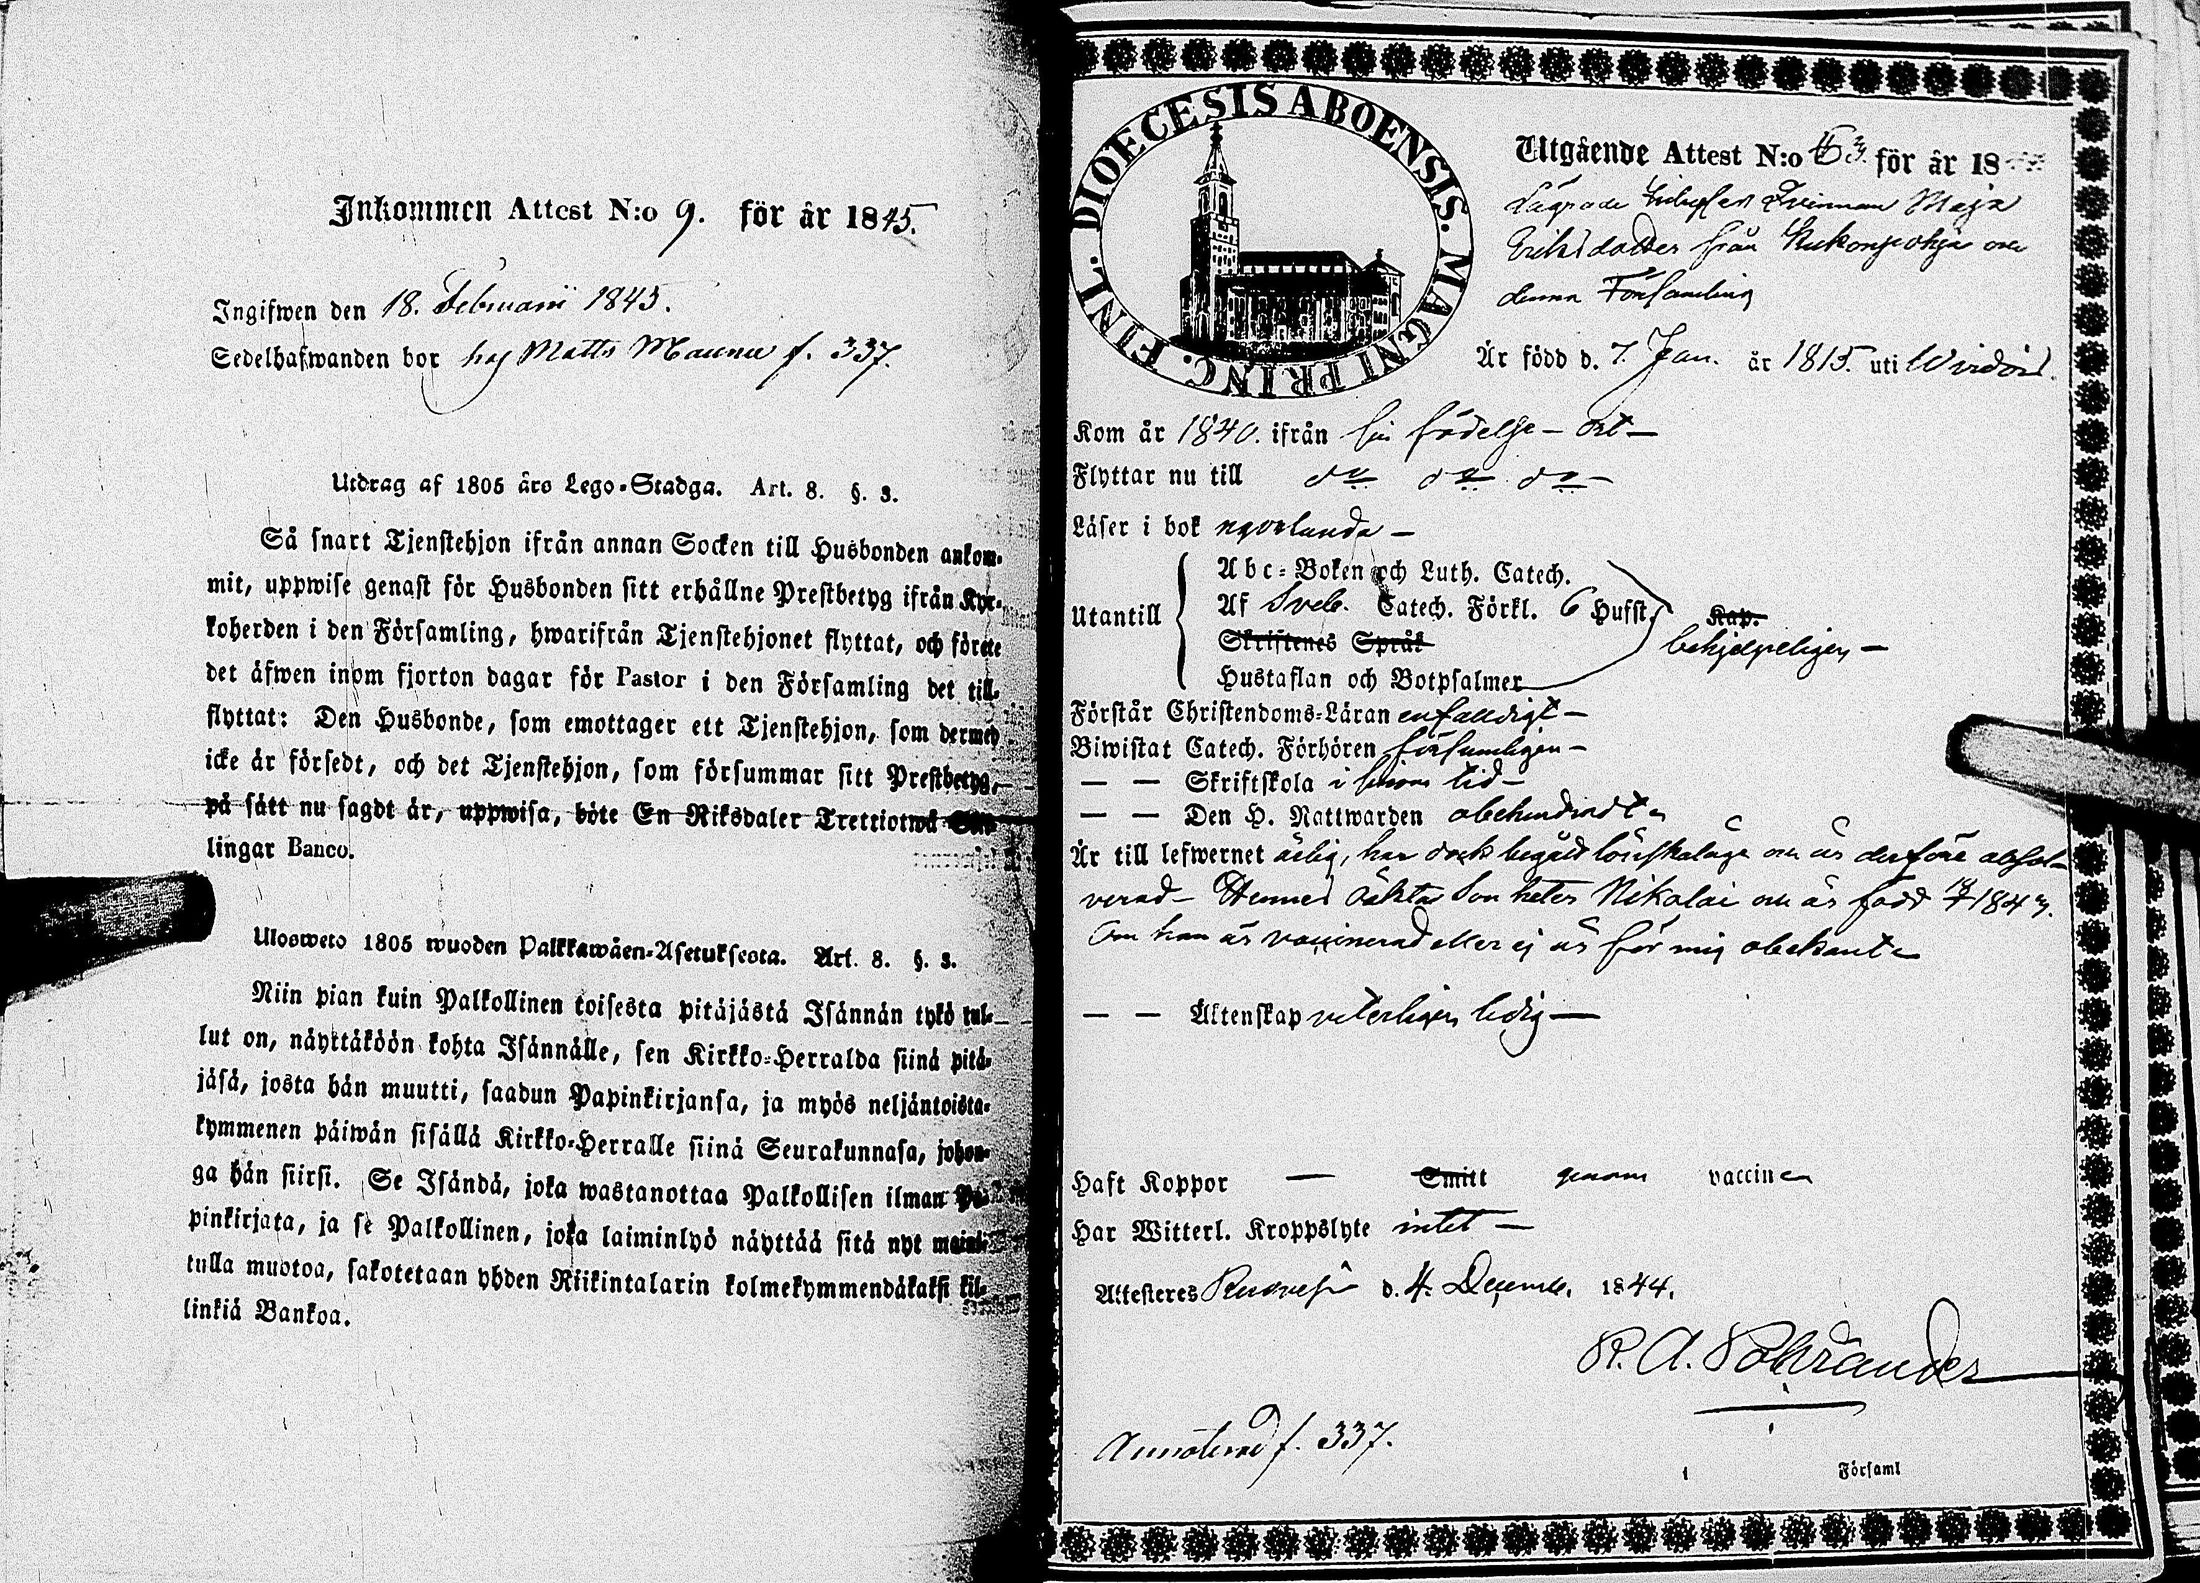 Inkommen Attest N:o 9. för år 1845.
Ingifwen den 18. Februarii 1845.
Sedelhafwanden bor hos Matts Maunu f. 337.
Utdrag af 1805 års Lego-Stadga. Art. 8. §. 3.
Så snart Tjenstehjon ifrån annan Socken till Husbonden ankom-
mit, uppwise genast för Husbonden sitt erhållne Prestbetyg ifrån Kyr-
koherden i den Församling, hwarifrån Tjenstehjonet flyttat, och förete
det äfwen inom fjorton dagar för Pastor i den Församling det till-
flyttat: Den Husbonde, som emottager ett Tjenstehjon, som dermed
icke är försedt, och det Tjenstehjon, som försummar sitt Prestbetyg,
på sätt nu sagdt är, uppwisa, böte En Riksdaler Trettiotwå Skil-
lingar Banco.
Ulosweto 1805 wuoden Palkkawäen-Asetuksesta. Art. 8. §. 3.
Niin pian kuin Palkollinen toisesta pitäjästä Isännän tykö tul-
lut on, näyttäköön kohta Isännälle, sen Kirkko-Herralda siinä pitä-
jäsä, josta hän muutti, saadun Papinkirjansa, ja myös neljäntoista-
kymmenen päiwän sisällä Kirkko-Herralle siinä Seurakunnasa, johon-
ga hän siirsi. Se Isändä, joka wastanottaa Palkollisen ilman Pa-
pinkirjata, ja se Palkollinen, joka laiminlyö näyttää sitä nyt maini-
tulla muotoa, sakotetaan yhden Riikintalarin kolmekymmendäkaksi kil-
linkiä Bankoa.
DIOECESIS ABOENSIS. MAGNI PRINC. FINL.
Utgående Attest N:o 63. för år 18
Maja
Eriksdotter från
denna Församling
Är född d. 7. Jan. år 1815. uti Wirdois.
Kom år 1840. ifrån sin födelse-ort-
Flyttar nu till do do do-
Läser i bok någorlunda-
Utantill
Abc-Boken och Luth. Catech.
Af Sveb. Catech. Förkl. 6 Hufst. Kap.
Skriftenes Språk behjelpeligen-
Hustaflan och Botpsalmer
Förstår Christendoms-Läran enfaldigt-
Biwistat Catech. Förhören försumligen-
— — Skriftskola i sinom tid-
— — Den H. Nattwarden obehindradt
Är till lefwernet ärlig, har dock begått lönskaläge och är derföre absol-
verad- Hennes oäkta Son heter Nikolai och är född 1843.
Om han är vaccinerad eller ej är för mig obekant
— — Äktenskap veterligen ledig—
Haft Koppor — Smitt genom vaccin
Har Witterl. Kroppslyte intet—
Attesteres Ruovesi d. 4. Decemb. 1844.
R. A. Pohlrander
Annoterad f. 337.
Församl